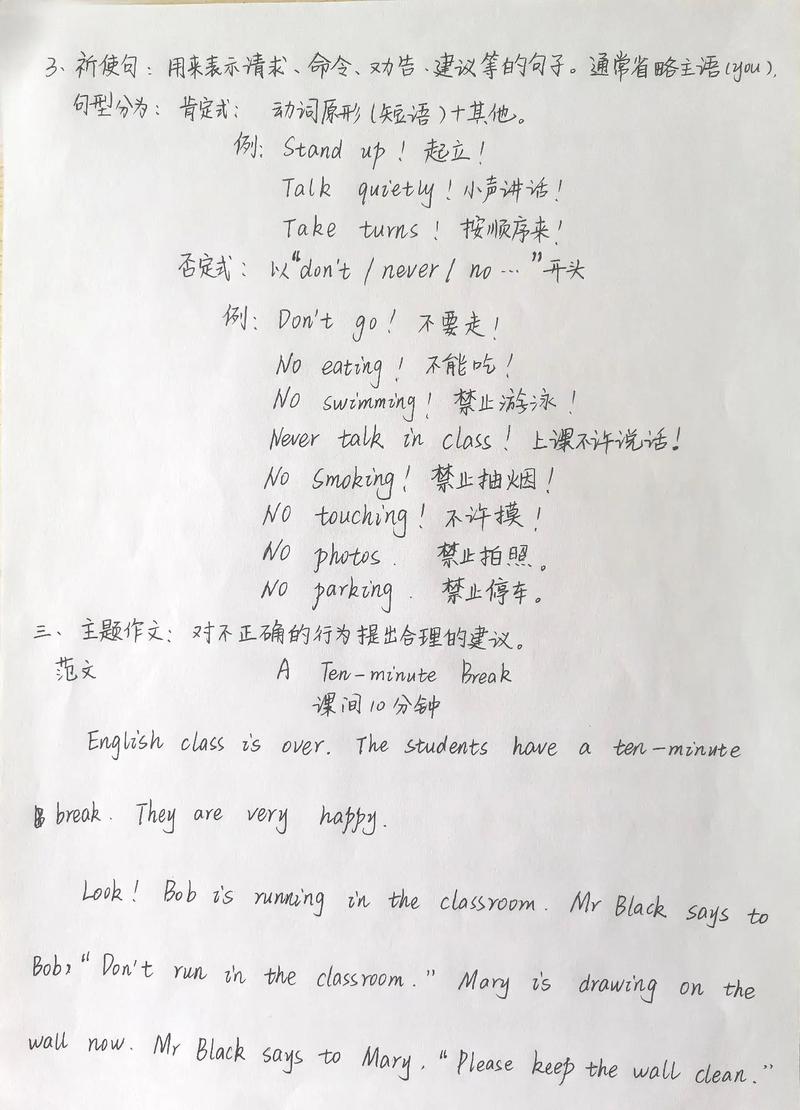 3、祈使句：用来表示请求、命令、劝告、建议等的句子。通常省略主语(you),
句型分为：肯定式：动词原形(短语)+其他。
例：Stand up！起立！
Talk quietly！小声讲话！
Take turns！按顺序来！
否定式：以“don't / never / no …”开头
例：Don't go！不要走！
No eating！不能吃！
No swimming！禁止游泳！
Never talk in class！上课不许说话！
No smoking！禁止抽烟！
No touching！不许摸！
No photos. 禁止拍照。
No parking. 禁止停车。
三、主题作文：对不正确的行为提出合理的建议。
范文 A Ten-minute Break
课间10分钟
English class is over. The students have a ten-minute
break. They are very happy.
Look! Bob is running in the classroom. Mr Black says to
Bob, “Don't run in the classroom.” Mary is drawing on the
wall now. Mr Black says to Mary, “Please keep the wall clean.”